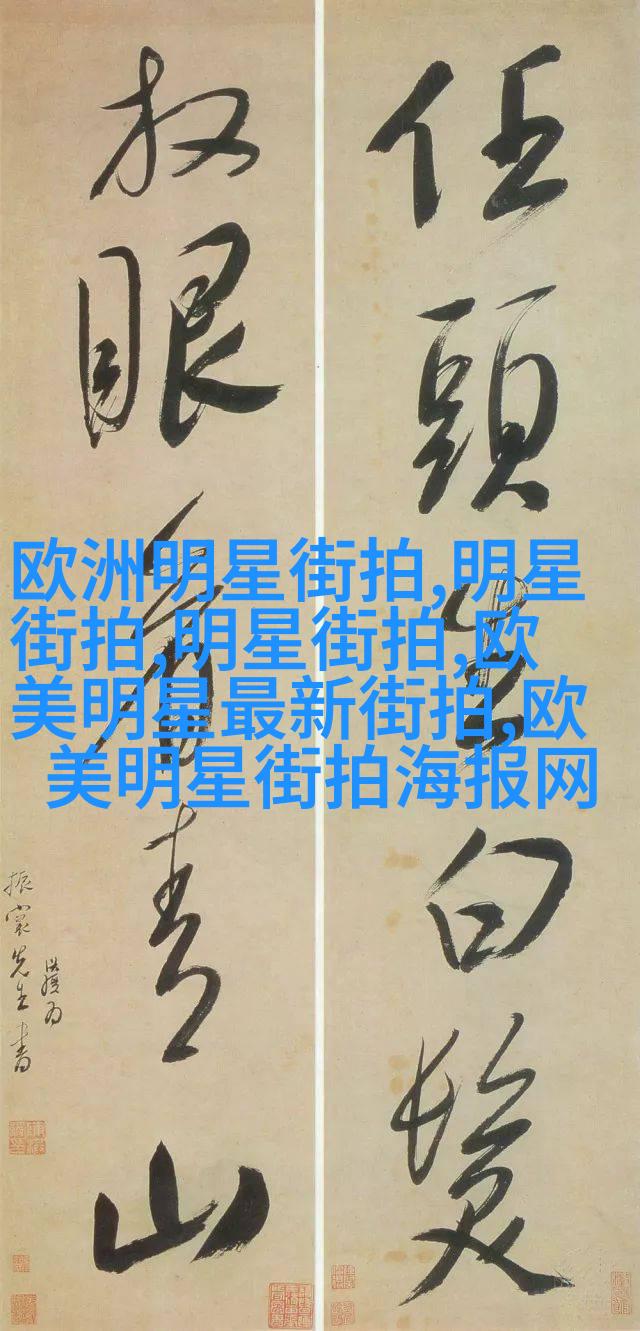 任頭生白髮
放眼看青山
先生書
欧洲明星街拍,明星
街拍,明星街拍,欧
美明星最新街拍,欧
美明星街拍海报网